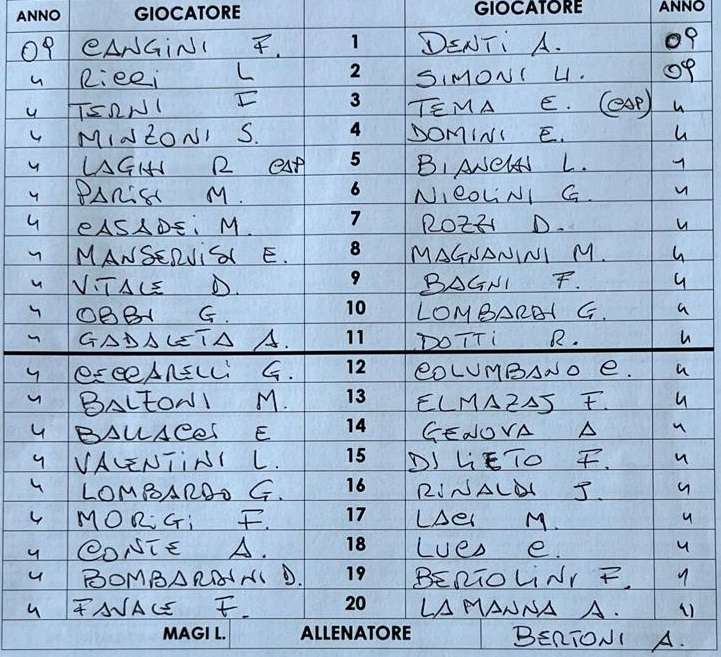 ANNO GIOCATORE GIOCATORE ANNO
09 CANGINI F. 1 DENTI A. 09
" RICCI L 2 SIMONI H. 09
" TERNI F 3 TEMA E. (CAP) "
" MINZONI S. 4 DOMINI E. "
" LAGHI R CAP 5 BIANCHI L. "
" PARISI M. 6 NICOLINI G. "
" CASADEI M. 7 ROZZI D. "
" MANSERVISI E. 8 MAGNANINI M. "
" VITALE D. 9 BAGNI F. "
" OBBI G. 10 LOMBARDI G. "
" GADALETA A. 11 DOTTI R. "
" CECCARELLI G. 12 COLUMBANO C. "
" BALZONI M. 13 ELMAZAJ F. "
" BALLACCI E 14 GENOVA A "
" VALENTINI L. 15 DI LIETO F. "
" LOMBARDO G. 16 RINALDI J. "
" MORIGI F. 17 LACI M. "
" CONTE A. 18 LUCA C. "
" BOMBARDINI D. 19 BERTOLINI F. "
" FAVALE F. 20 LA MANNA A. "
MAGI L. ALLENATORE BERTONI A.